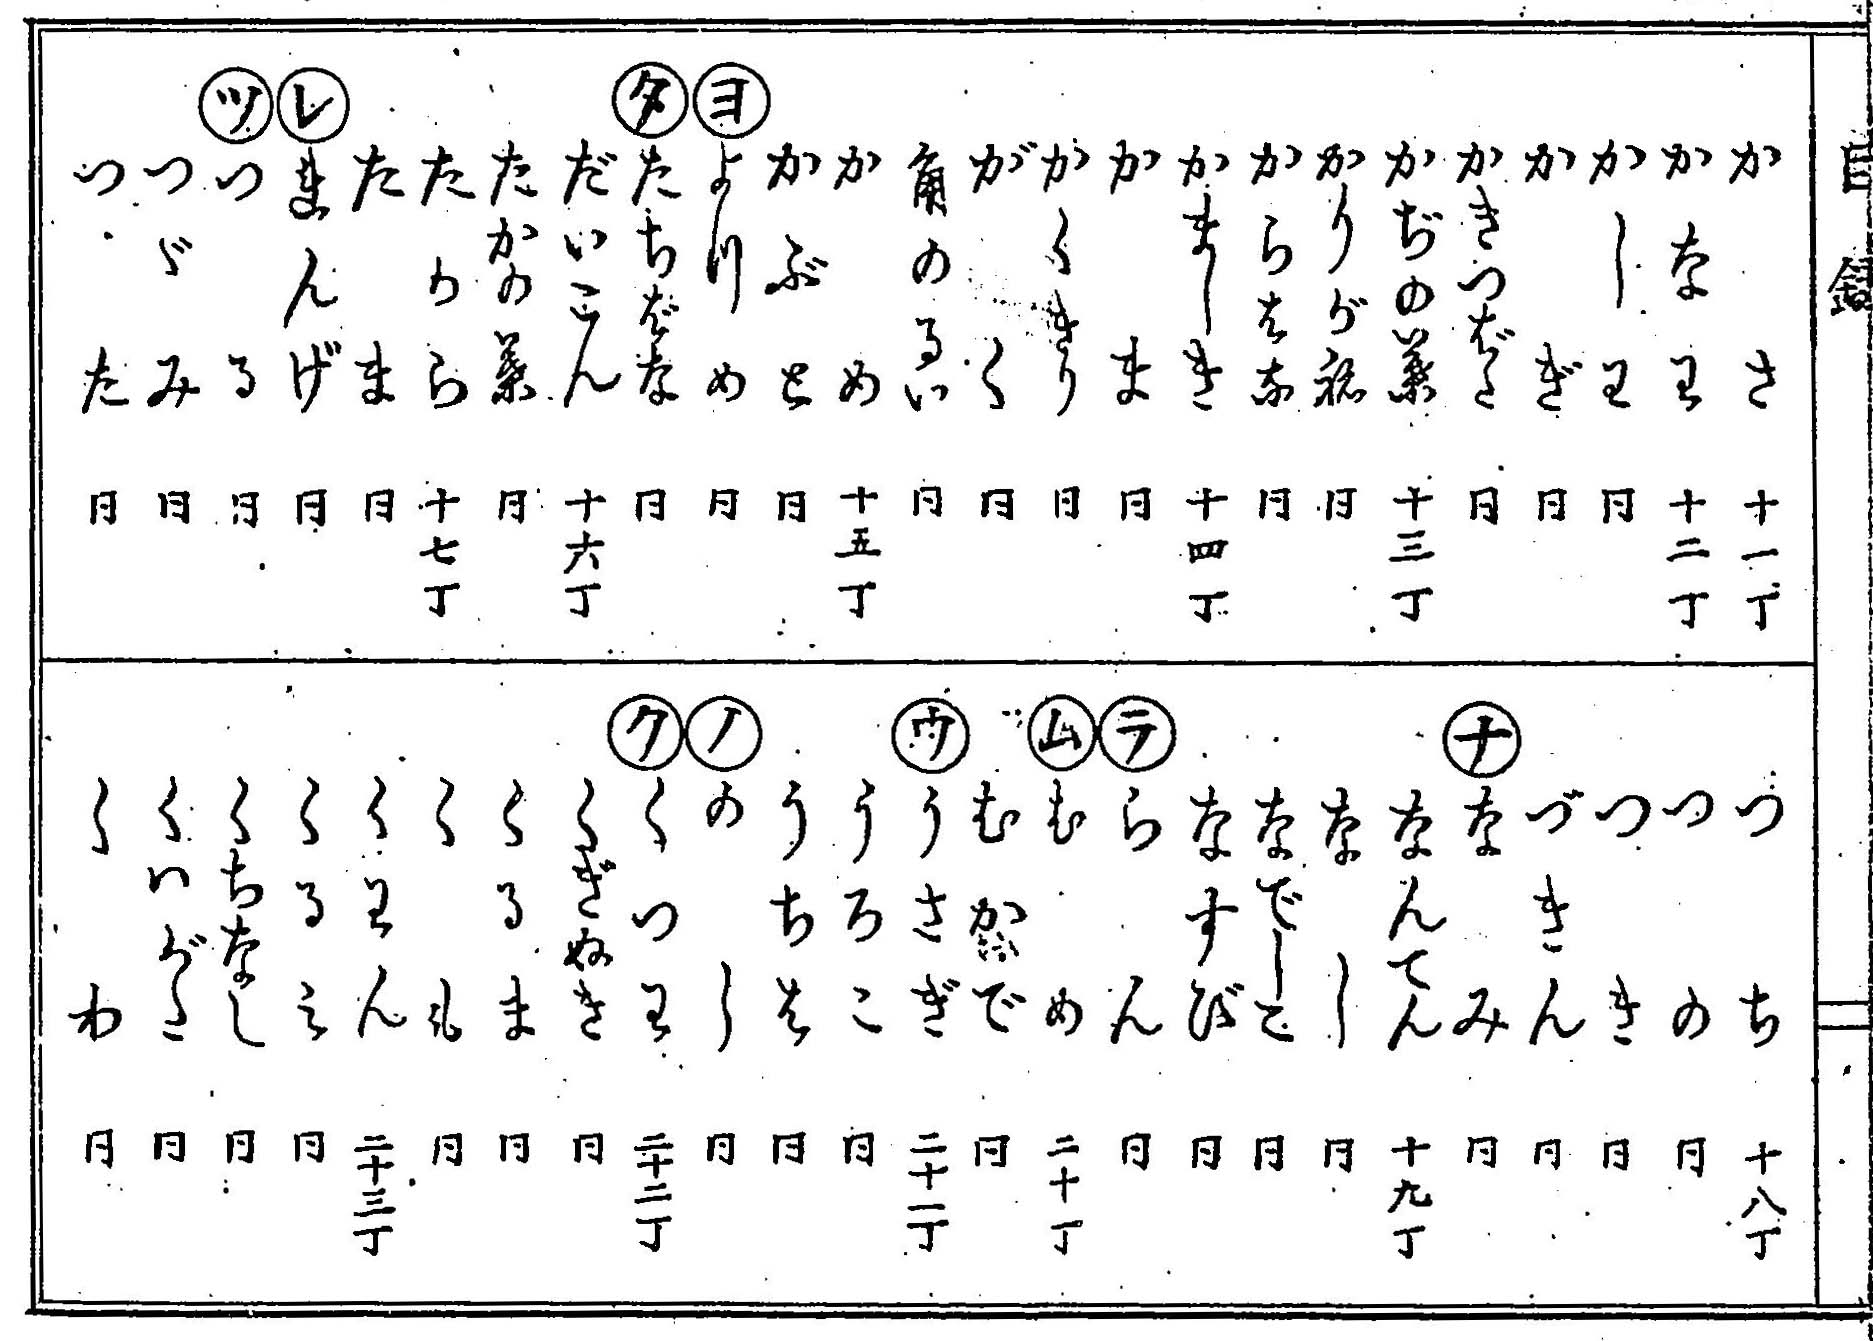 目録
かさ 十一丁
かなわ 十二丁
かしわ 同
かぎ 同
かきつばた 同
かぢの葉 十三丁
かりが祢 同
からはな 同
かましき 十四丁
かま 同
かくきり 同
がく 同
角のるい 同
かめ 十五丁
かぶと 同
ヨ よつめ 同
タ たちばな 同
だいこん 十六丁
たかの葉 同
たから 十七丁
たま 同
レ れんげ 同
ツ つる 同
つゞみ 同
つた 同
つち 十八丁
つの 同
つき 同
づきん 同
ナ なみ 同
なんてん 十九丁
なし 同
なでしこ 同
なすび 同
ラ らん 同
ム むめ 二十丁
むかで 同
ウ うさぎ 二十一丁
うろこ 同
うちは 同
ノ のし 同
ク くつわ 二十二丁
くぎぬき 同
くるま 同
くも 同
くわん 二十三丁
くるみ 同
くちなし 同
くいがた 同
くわ 同